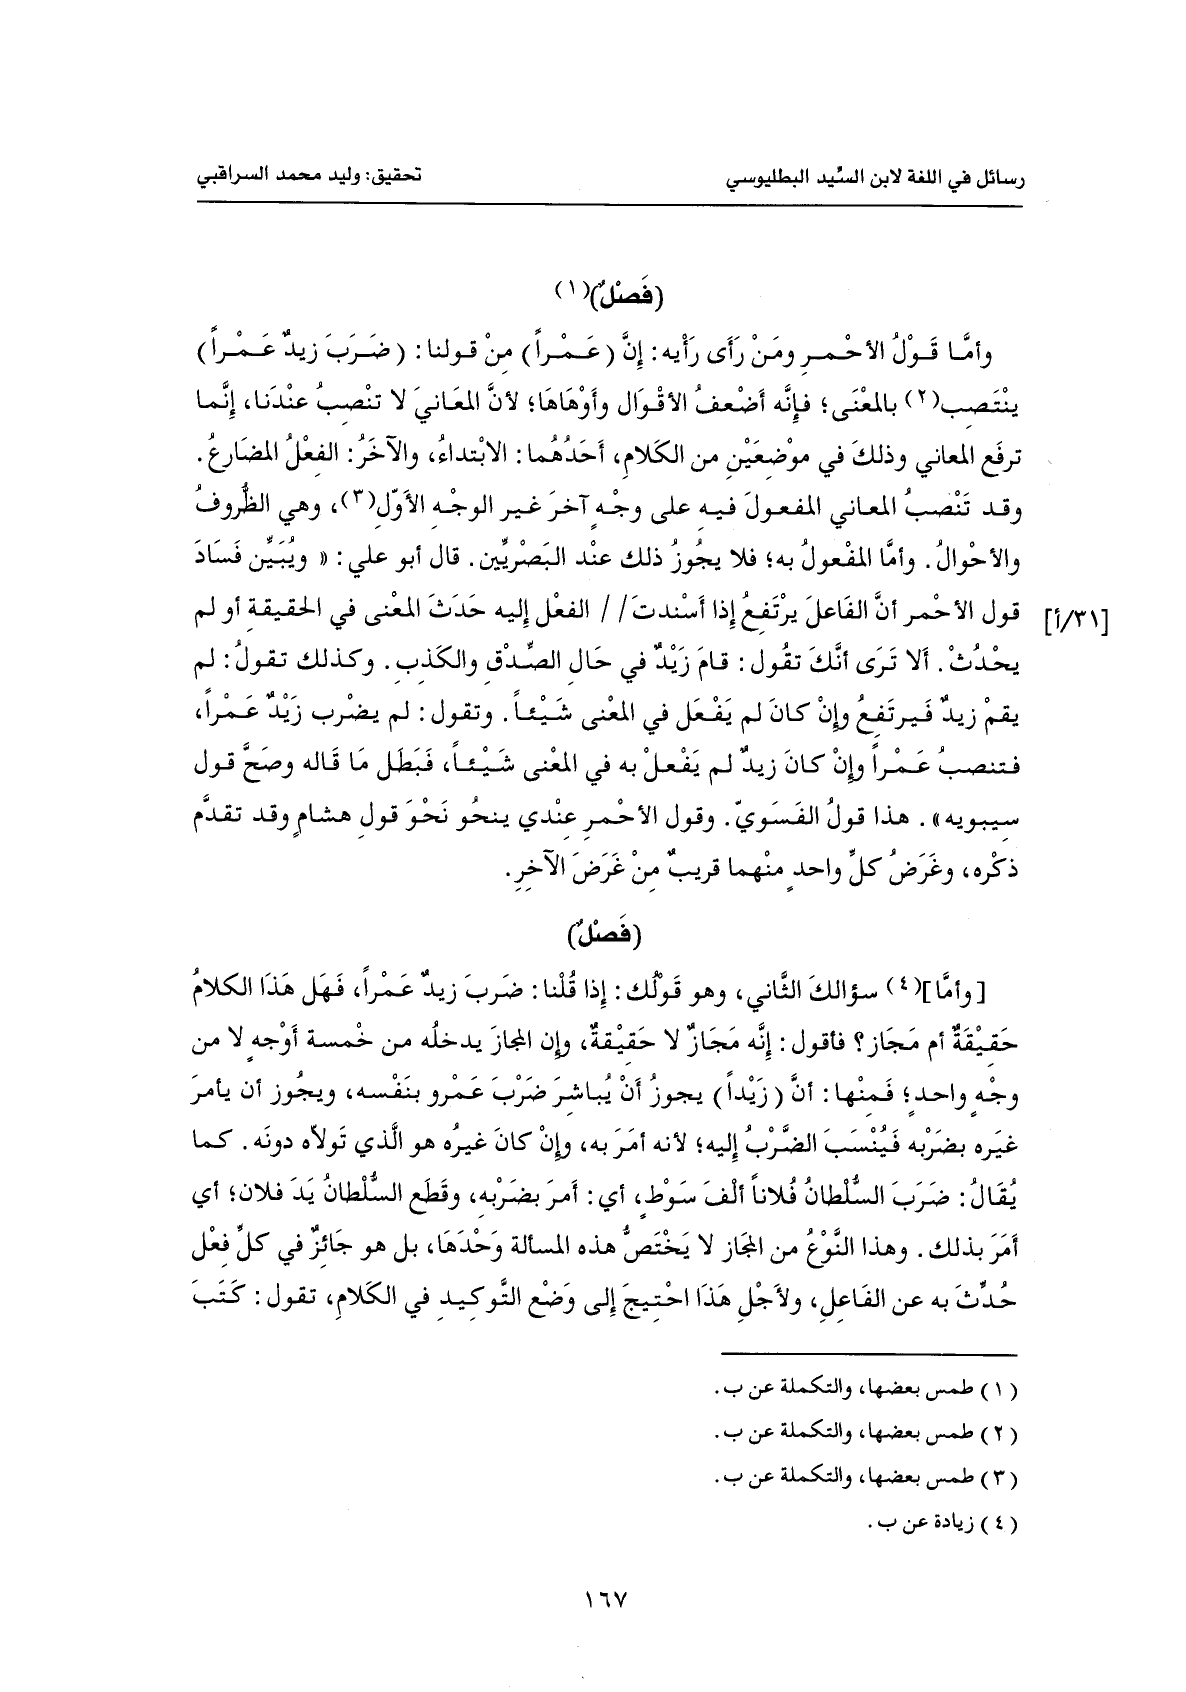 رسائل في اللغة لابن السِّيد البطليوسي
تحقيق: وليد محمد السراقبي
(فَصْلٌ)(١)
وأمَّا قَوْلُ الأحْمرِ ومَنْ رَأَى رَأْيه: إنَّ (عَمْراً) مِنْ قولنا: (ضَرَبَ زيدٌ عَمْراً)
يِنْتَصِب(٢) بالمعْنَى؛ فإنَّه أضْعفُ الأقْوَال وأوْهَاهَا؛ لأنَّ المعَانيَ لا تنْصِبُ عنْدَنَا، إنَّما
ترفَع المعاني وذلكَ في موْضِعَيْنِ من الكَلام، أحَدُهُما: الابْتداءُ، والآخَرُ: الفعْلُ المضَارعُ.
وقد تَنْصبُ المعاني المفعولَ فيه على وجْهٍ آخرَ غير الوجْهِ الأوّل(٣)، وهي الظُّروفُ
والأحْوالُ. وأمَّا المفْعولُ به؛ فلا يجُوزُ ذلك عنْد البَصْريِّين. قال أبو علي: « ويُبَيِّن فَسَادَ
قول الأحْمر أنَّ الفَاعلَ يرْتَفِعُ إذا أسْندتَ// الفعْل إليه حَدَثَ المعْنى في الحقيقة أو لم
[٣١/أ]
يحْدُثْ. ألا تَرَى أنَّكَ تقُول: قامَ زَيْدٌ في حَالِ الصِّدْقِ والكَذبِ. وكذلك تقولُ: لم
يقمْ زيدٌ فَيرتَفِعُ وإنْ كانَ لم يَفْعَل في المعْنى شَيْئاً. وتقول: لم يضْرب زَيْدٌ عَمْراً،
فتنصبُ عَمْراً وإنْ كانَ زيدٌ لم يَفْعلْ به في المعْنى شَيْئاً، فَبَطَل مَا قَاله وصَحَّ قول
سيبويه». هذا قولُ الفَسَويّ. وقول الأحْمرِ عنْدي ينحُو نَحْوَ قولِ هشامٍ وقد تقدَّم
ذكْره، وغَرَضُ كلِّ واحدٍ منْهما قريبٌ مِنْ غَرَضَ الآخِرِ.
(فَصْلٌ)
[وأمَّا](٤) سؤالكَ الثَّاني، وهو قَوْلُك: إذا قُلْنا: ضَربَ زيدٌ عَمْراً، فَهَل هَذَا الكلامُ
حَقِيْقَةٌ أم مَجَاز؟ فأقول: إنَّه مَجَازٌ لا حَقِيْقةٌ، وإن المجَاز يدخلُه من خْمسة أَوْجهٍ لا من
وجْهٍ واحدٍ؛ فَمِنْها: أنَّ (زَيْداً) يجوزُ أنْ يُباشِرَ ضَرْبَ عَمْرو بنَفْسه، ويجُوز أن يأمرَ
غيَره بضَرْبْه فَيُنْسَبَ الضَّرْبُ إليه؛ لأنه أمَرَ به، وإنْ كانَ غيرُه هو الَّذي تَولاَه دونَه. كما
يُقَالُ: ضَرَبَ السُّلْطانُ فُلاناً ألْفَ سَوْطٍ، أي: أمرَ بضَرْبِه، وقَطَع السُّلْطانُ يَدَ فلان؛ أي
أمَرَ بذلك. وهذا النَّوْعُ من المجَاز لا يَخْتَصُّ هذه المسألة وَحْدَهَا، بل هو جَائِزٌ في كلِّ فعْل
حُدِّثَ به عن الفَاعلِ، ولأجْلِ هَذَا احْتِيجَ إلى وَضْع التَّوكيدِ في الكَلامِ، تقول: كَتَبَ
(١) طمس بعضها، والتكملة عن ب.
(٢) طمس بعضها، والتكملة عن ب.
(٣) طمس بعضها، والتكملة عن ب.
(٤) زيادة عن ب.
١٦٧